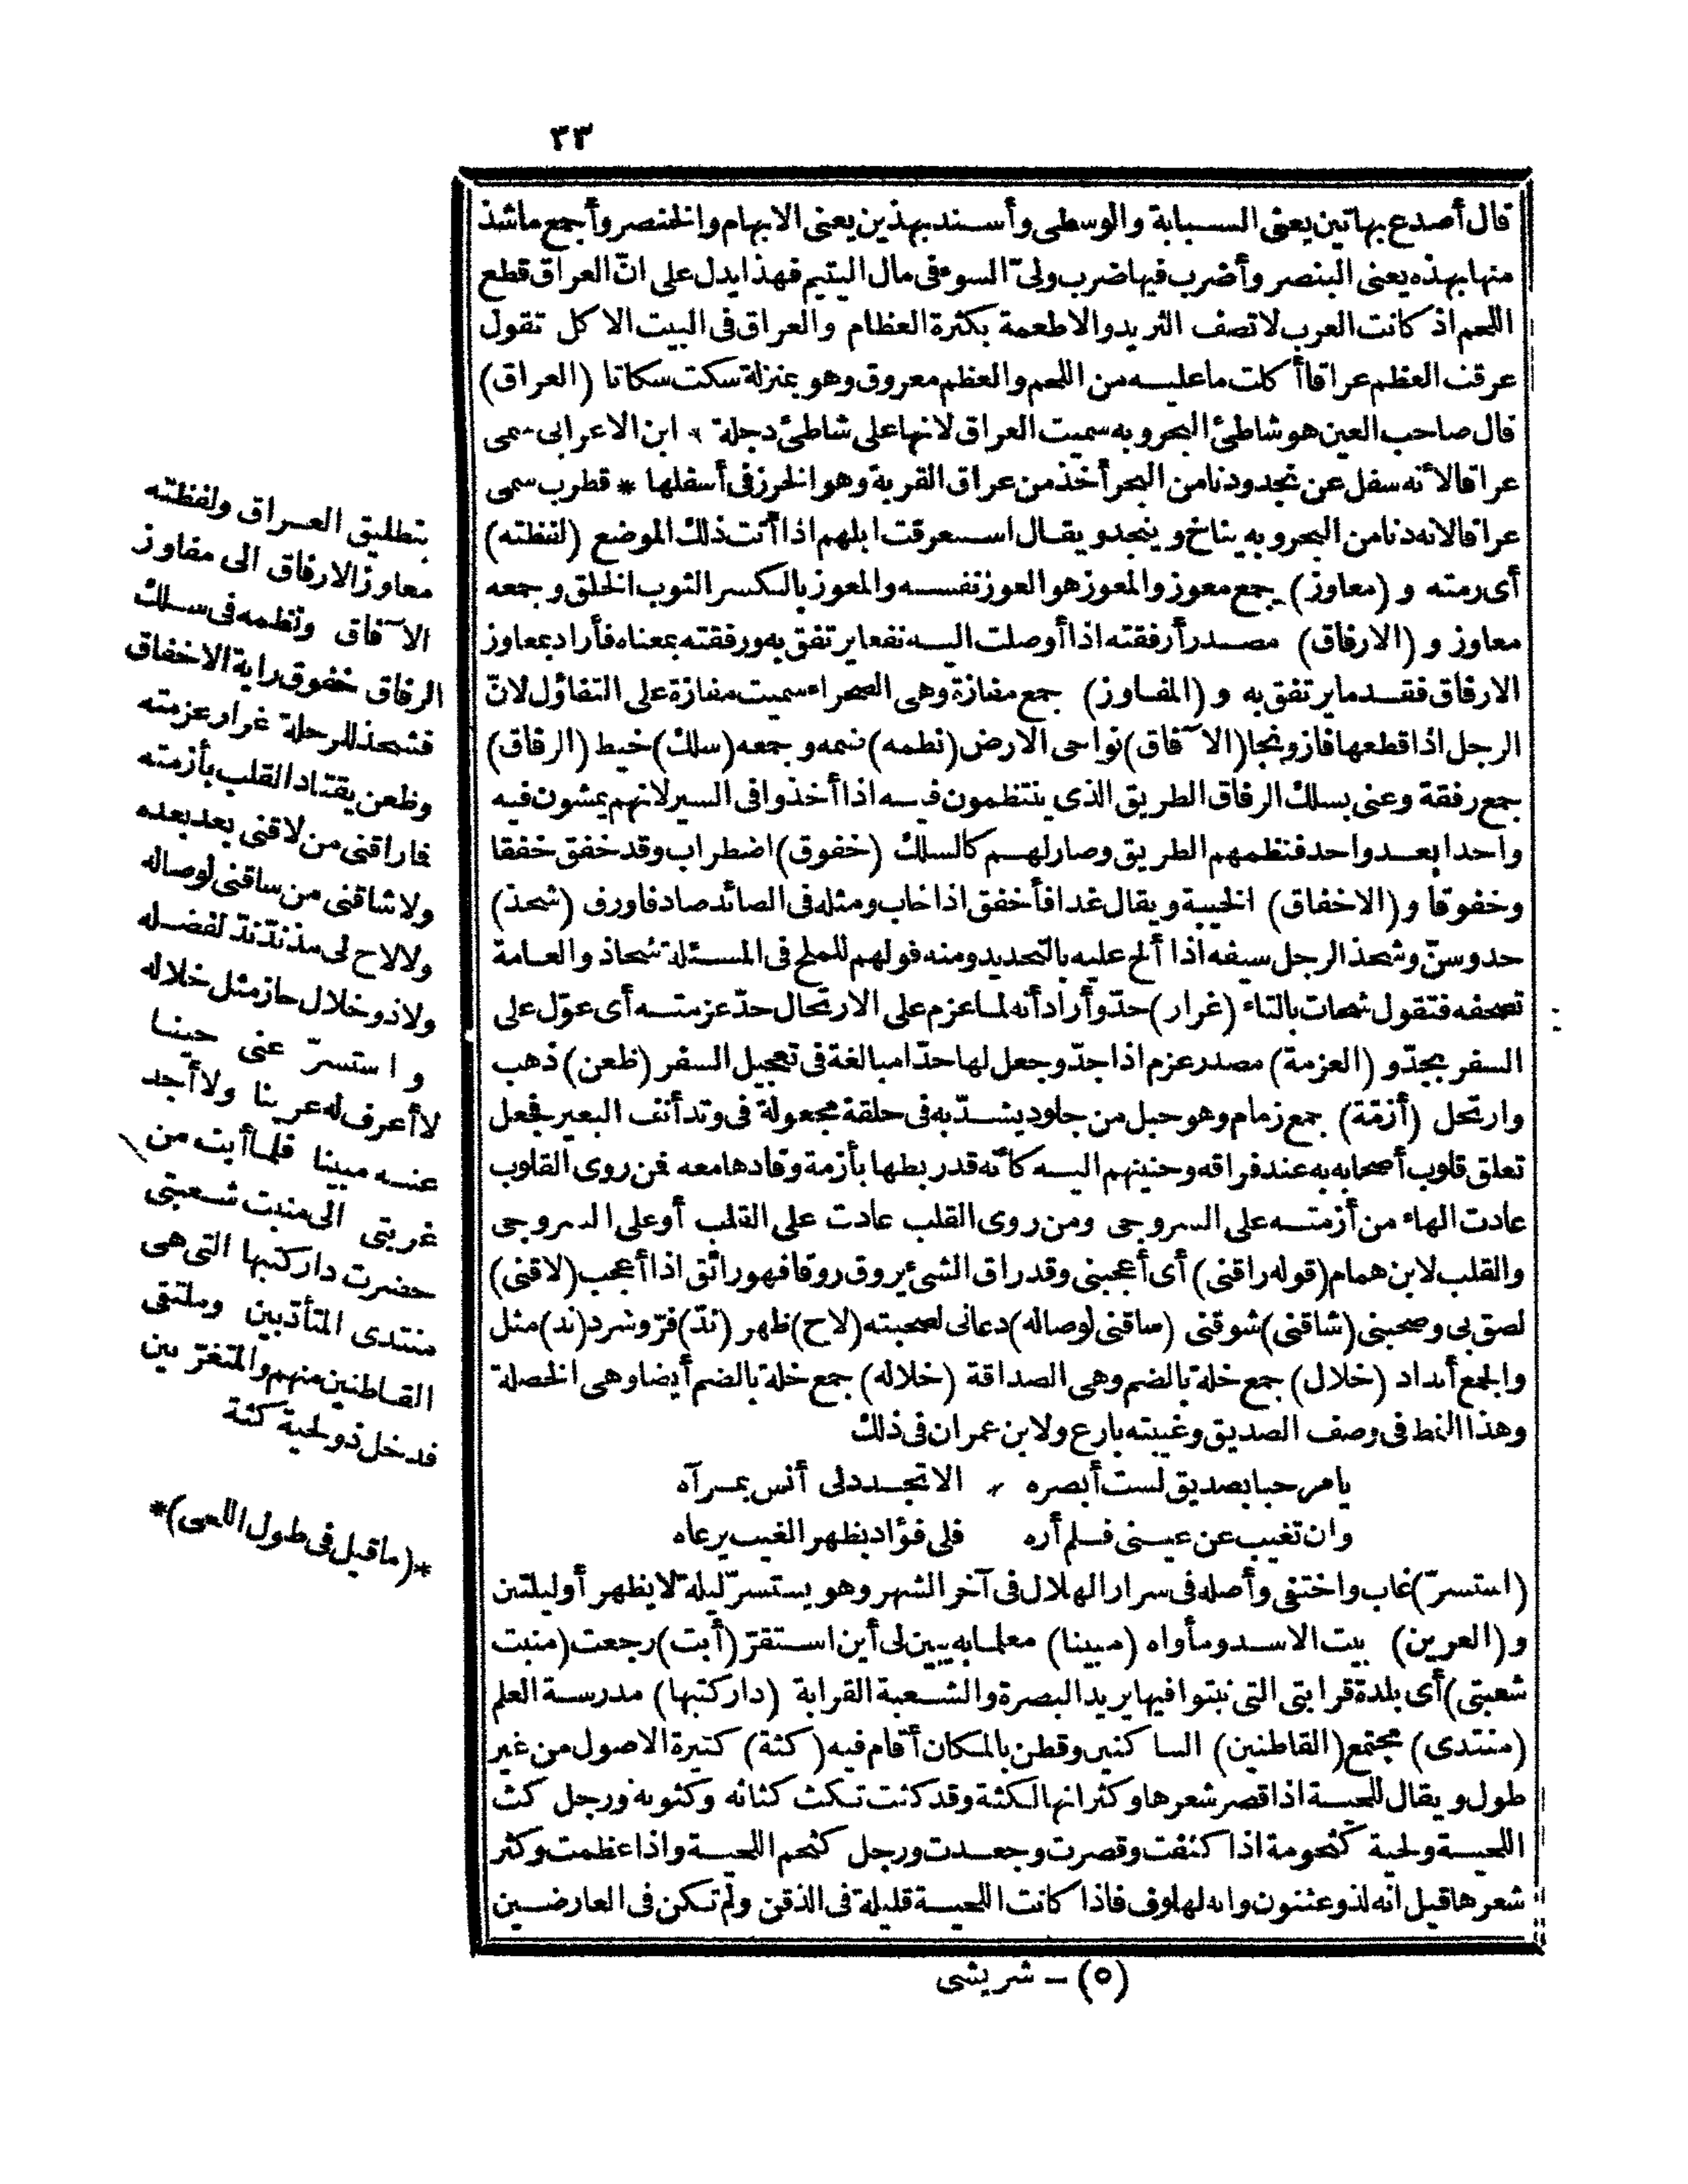 ٣٣
قال أصدع بهاتين يعنى السبابة والوسطى وأسند بهذين يعنى الابهام والخنصر وأجمع ماشذ
منها بهذه يعنى البنصر وأضرب فيها ضرب ولىّ السوء فى مال اليتيم فهذا يدل على انّ العراق قطع
اللحم اذ كانت العرب لا تصف الثريد والاطعمة بكثرة العظام والعراق فى البيت الاكل تقول
عرقت العظم عراقا أكلت ما عليه من اللحم والعظم معروق وهو بمنزلة سكت سكاتا (العراق)
قال صاحب العين هو شاطئ البحر وبه سميت العراق لانها على شاطئ دجلة * ابن الاعرابى سمى
عراقا لأنه سفل عن نجد ودنا من البحر أخذ من عراق القربة وهو الخرز فى أسفلها * قطرب سمى
عراقا لانه دنا من البحر وبه يناخ وينجد ويقال استعرقت ابلهم اذا أتت ذلك الموضع (لفظته)
أى رمته و (معاوز) جمع معوز والمعوز هو العوز نفسه والمعوز بالكسر الثوب الخلق وجمعه
معاوز و (الارفاق) مصدر أرفقته اذا أوصلت اليه نفعا يرتفق به ورفقته بمعناه فأراد بمعاوز
الارفاق فقد ما يرتفق به و (المفاوز) جمع مفازة وهى الصحراء سميت مفازة على التفاؤل لانّ
الرجل اذا قطعها فاز ونجا (الآفاق) نواحى الارض (نظمه) ضمه وجمعه (سلك) خيط (الرفاق)
جمع رفقة وعنى بسلك الرفاق الطريق الذى ينتظمون فيه اذا أخذوا فى السير لانهم يمشون فيه
واحدا بعد واحد فنظمهم الطريق وصار لهم كالسلك (خفوق) اضطراب وقد خفق خفقا
وخفوقا و (الاخفاق) الخيبة ويقال غدا فأخفق اذا خاب ومثله فى الصائد صاد فاورق (شحذ)
حد وسنّ وشحذ الرجل سيفه اذا ألح عليه بالتحديد ومنه قولهم للملح فى المسئلة شحاذ والعامة
تصحفه فتقول شحات بالتاء (غرار) حدّ وأراد أنه لما عزم على الارتحال حدّ عزمته أى عوّل على
السفر بجدّ و (العزمة) مصدر عزم اذا جدّ وجعل لها حدّا مبالغة فى تعجيل السفر (ظعن) ذهب
وارتحل (أزمّة) جمع زمام وهو حبل من جلود يشدّ به فى حلقة مجعولة فى وتد أنف البعير فجعل
تعلق قلوب أصحابه به عند فراقه وحنينهم اليه كأنه قد ربطها بأزمة وقادها معه فمن روى القلوب
عادت الهاء من أزمته على السروجى ومن روى القلب عادت على القلب أو على السروجى
والقلب لابن همام (قوله راقنى) أى أعجبنى وقد راق الشئ يروق روقا فهو رائق اذا أعجب (لاقنى)
لصق بى وصحبنى (شاقنى) شوقنى (ساقنى لوصاله) دعانى لصحبته (لاح) ظهر (ندّ) فرّ وشرد (ند) مثل
والجمع أنداد (خلال) جمع خلة بالضم وهى الصداقة (خلاله) جمع خلة بالضم أيضا وهى الخصلة
وهذا النمط فى وصف الصديق وغيبته بارع ولابن عمران فى ذلك
يا مرحبا بصديق لست أبصره * الا تجدد لى أنس بمرآه
وان تغيب عن عينى فلم أره فلى فؤاد بظهر الغيب يرعاه
(استسرّ) غاب واختفى وأصله فى سرار الهلال فى آخر الشهر وهو يستسرّ ليلة لا يظهر أو ليلتين
و (العرين) بيت الاسد ومأواه (مبينا) معلما به يبين لى أين استقرّ (أبت) رجعت (منبت
شعبتى) أى بلدة قرابتى التى نبتوا فيها يريد البصرة والشعبة القرابة (دار كتبها) مدرسة العلم
(منتدى) مجتمع (القاطنين) الساكنين وقطن بالمكان أقام فيه (كثة) كثيرة الاصول من غير
طول ويقال للحية اذا قصر شعرها وكثر انها لكثة وقد كثت تكث كثاثه وكثوثه ورجل كث
اللحية ولحية كثحومة اذا كثفت وقصرت وجعدت ورجل كثحم اللحية واذا عظمت وكثر
شعرها قيل انه لذو عثنون وانه لهلوف فاذا كانت اللحية قليلة فى الذقن ولم تكن فى العارضين
(٥) – شريشى
بتطليق العراق ولفظته
معاوز الارفاق الى مفاوز
الآفاق ونظمه فى سلك
الرفاق خفوق راية الاخفاق
فشحذ للرحلة غرار عزمته
وظعن يقتاد القلب بأزمته
فما راقنى من لاقنى بعد بعده
ولا شاقنى من ساقنى لوصاله
ولا لاح لى مذ ندّ ندّ لفضله
ولا ذو خلال حاز مثل خلاله
واستسرّ عنى حينا
لا أعرف له عرينا ولا أجد
عنه مبينا فلما أبت من
غربتى الى منبت شعبتى
حضرت دار كتبها التى هى
منتدى المتأدّبين وملتقى
القاطنين منهم والمتغرّبين
فدخل ذو لحية كثة
*(ما قيل فى طول اللحى)*